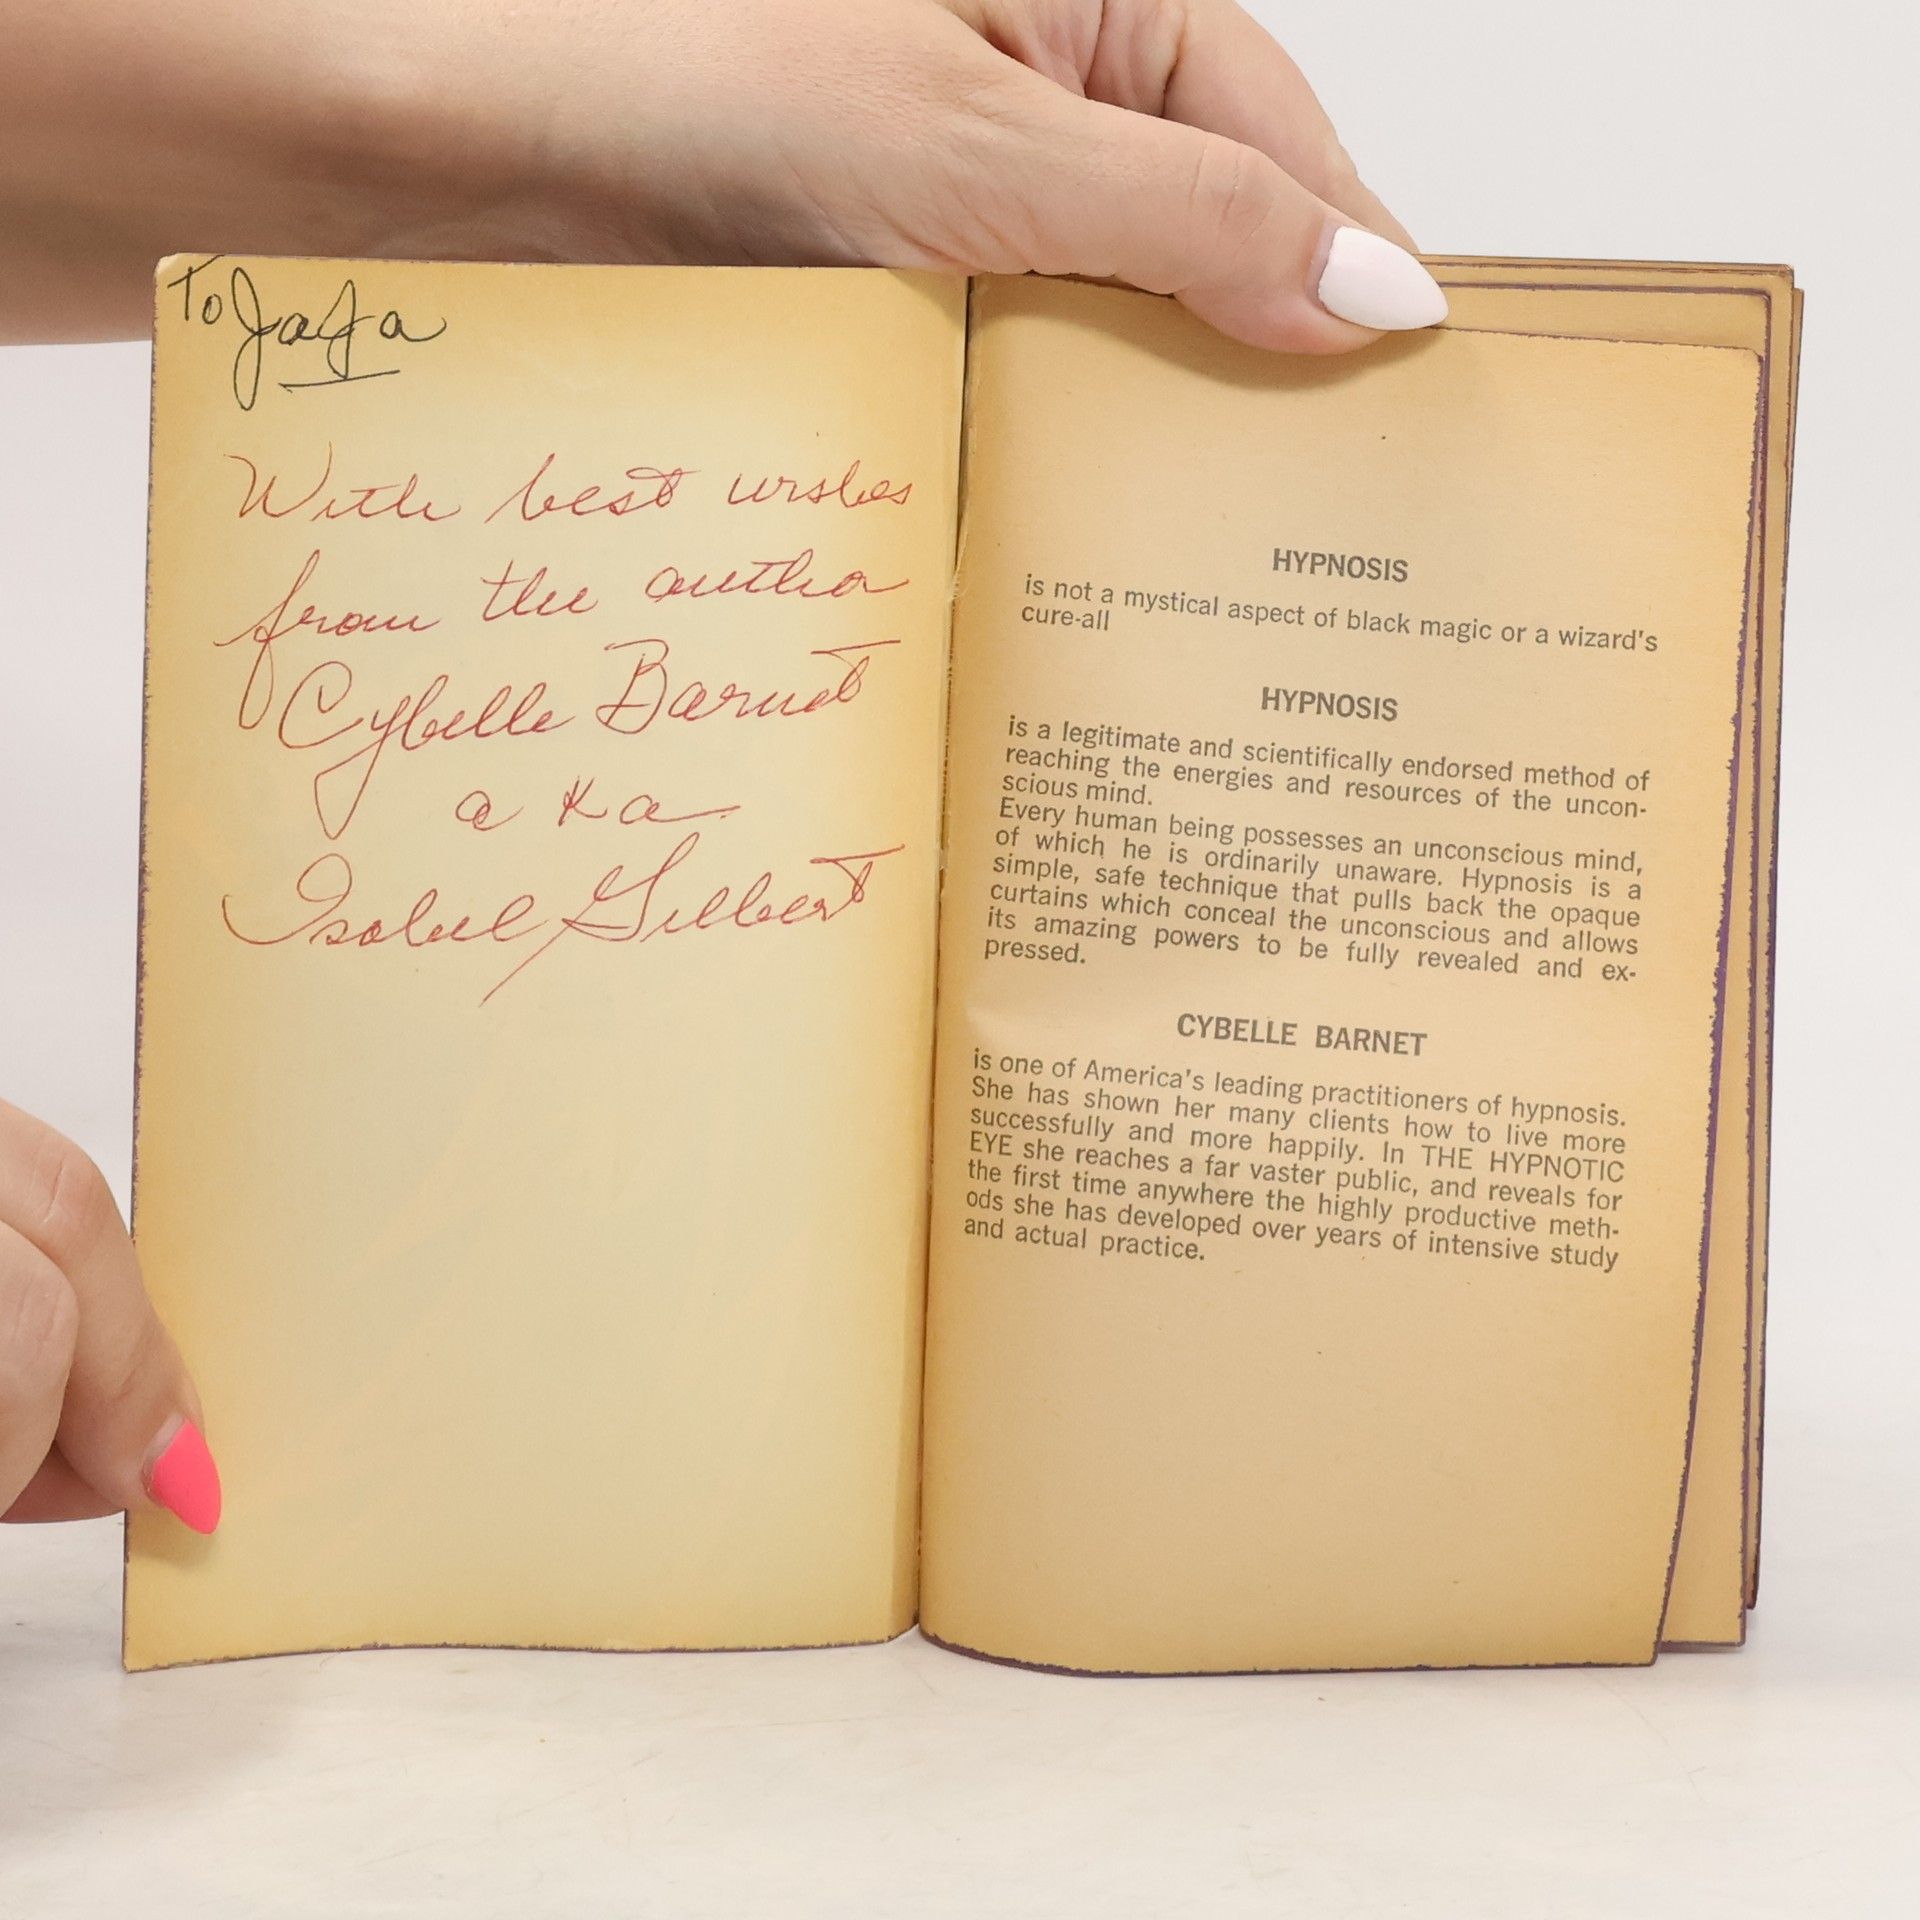 To Jafa
With best wishes
from the author
Cybelle Barnet
a k a
Isabel Gilbert
HYPNOSIS
is not a mystical aspect of black magic or a wizard's
cure-all
HYPNOSIS
is a legitimate and scientifically endorsed method of
reaching the energies and resources of the uncon-
scious mind.
Every human being possesses an unconscious mind,
of which he is ordinarily unaware. Hypnosis is a
simple, safe technique that pulls back the opaque
curtains which conceal the unconscious and allows
its amazing powers to be fully revealed and ex-
pressed.
CYBELLE BARNET
is one of America's leading practitioners of hypnosis.
She has shown her many clients how to live more
successfully and more happily. In THE HYPNOTIC
EYE she reaches a far vaster public, and reveals for
the first time anywhere the highly productive meth-
ods she has developed over years of intensive study
and actual practice.